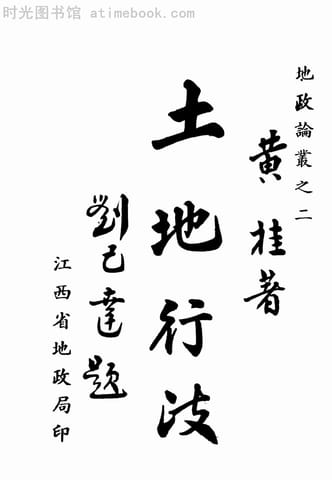 时光图书馆 atimebook.com
地政論叢之二
黄桂著
土地行政
劉己達題
江西省地政局印